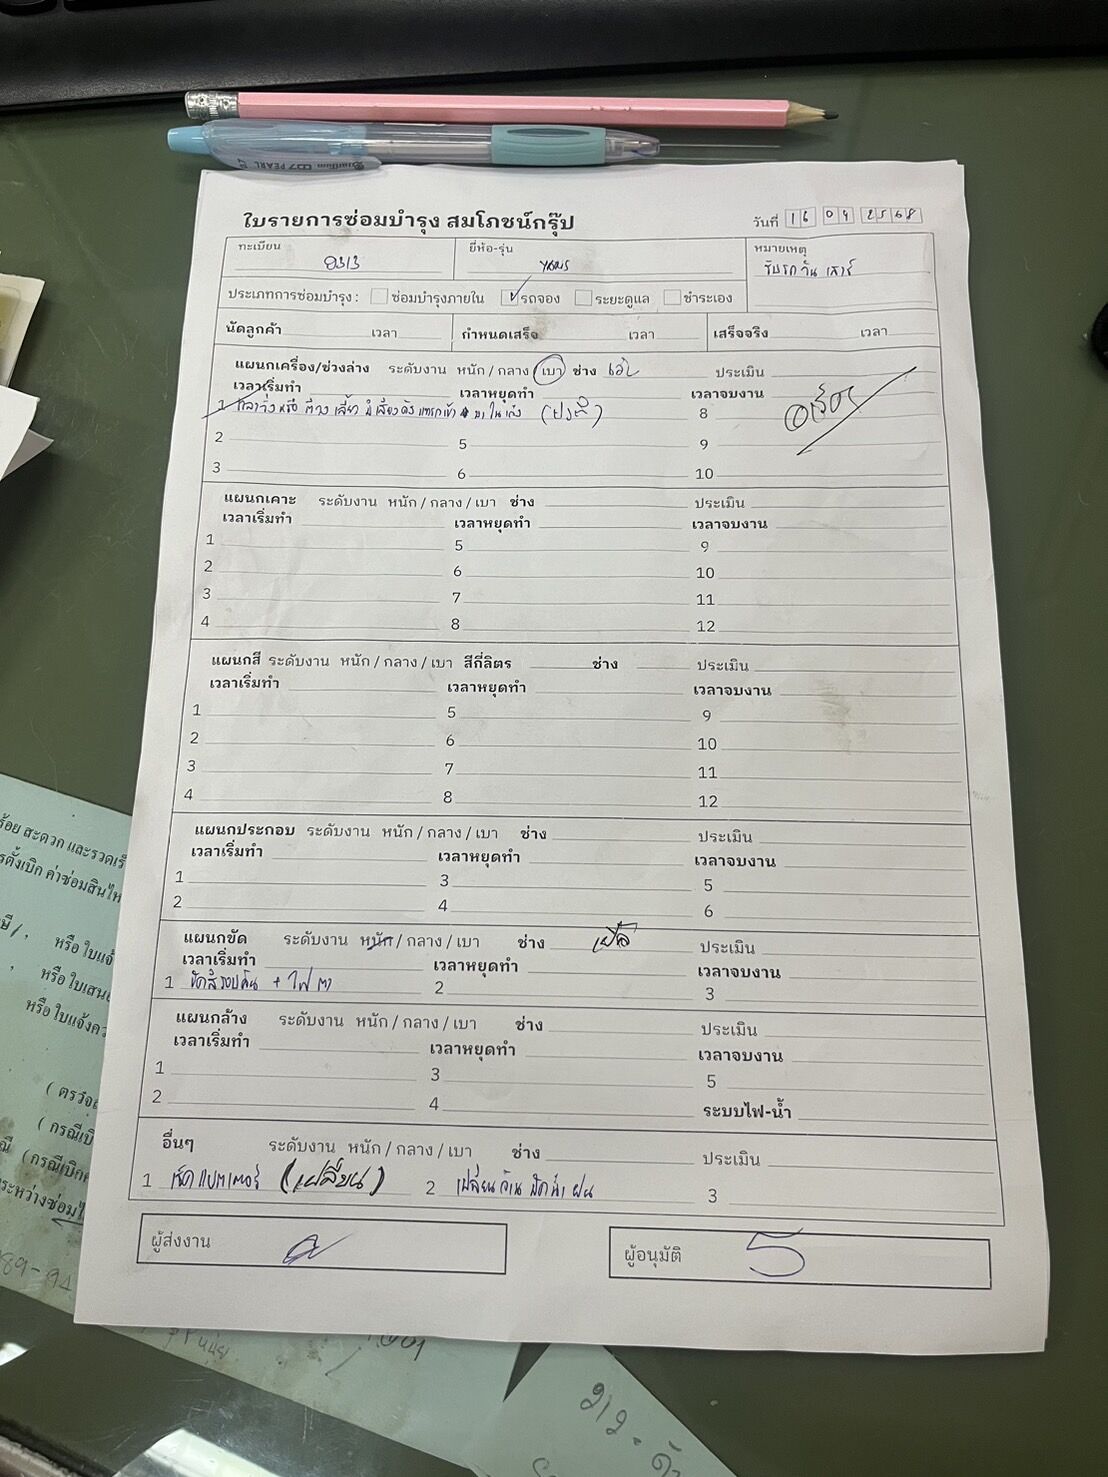 ใบรายการซ่อมบำรุง สมโภชน์กรุ๊ป
วันที่ 16 04 2568
ทะเบียน
ยี่ห้อ-รุ่น YARIS
หมายเหตุ
รับรถวันเสาร์
ประเภทการซ่อมบำรุง : ซ่อมบำรุงภายใน รถจอง ระยะดูแล ชำระเอง
นัดลูกค้า เวลา กำหนดเสร็จ เวลา เสร็จจริง เวลา
แผนกเครื่อง/ช่วงล่าง ระดับงาน หนัก / กลาง / เบา ช่าง ประเมิน
เวลาเริ่มทำ เวลาหยุดทำ เวลาจบงาน
1 เวลาวิ่งหรือตีวงเลี้ยวมีเสียงดัง (ปกติ) 8
2 5 9
3 6 10
แผนกเคาะ ระดับงาน หนัก / กลาง / เบา ช่าง ประเมิน
เวลาเริ่มทำ เวลาหยุดทำ เวลาจบงาน
1 5 9
2 6 10
3 7 11
4 8 12
แผนกสี ระดับงาน หนัก / กลาง / เบา สีกี่ลิตร ช่าง ประเมิน
เวลาเริ่มทำ เวลาหยุดทำ เวลาจบงาน
1 5 9
2 6 10
3 7 11
4 8 12
แผนกประกอบ ระดับงาน หนัก / กลาง / เบา ช่าง ประเมิน
เวลาเริ่มทำ เวลาหยุดทำ เวลาจบงาน
1 3 5
2 4 6
แผนกขัด ระดับงาน หนัก / กลาง / เบา ช่าง ประเมิน
เวลาเริ่มทำ เวลาหยุดทำ เวลาจบงาน
1 ขัดสีรอบคัน + ไฟตา 2 3
แผนกล้าง ระดับงาน หนัก / กลาง / เบา ช่าง ประเมิน
เวลาเริ่มทำ เวลาหยุดทำ เวลาจบงาน
1 3 5
2 4 ระบบไฟ-น้ำ
อื่นๆ ระดับงาน หนัก / กลาง / เบา ช่าง ประเมิน
1 เช็คแบตเตอรี่ (เปลี่ยน) 2 เปลี่ยนก้านปัดน้ำฝน 3
ผู้ส่งงาน
ผู้อนุมัติ